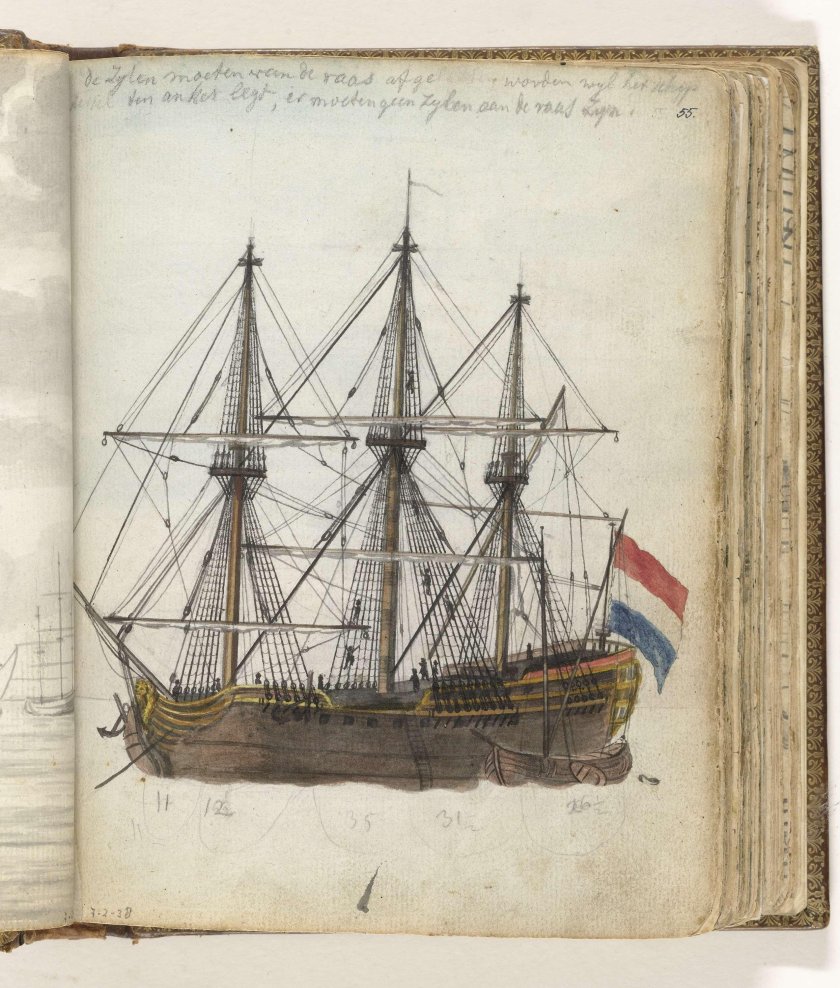 de Zylen moeten van de raas afge worden wyl het schip
ten anker legt, er moeten geen Zylen aan de raas Zyn.
55.
11 12½ 35 31½ 26½
7-2-28